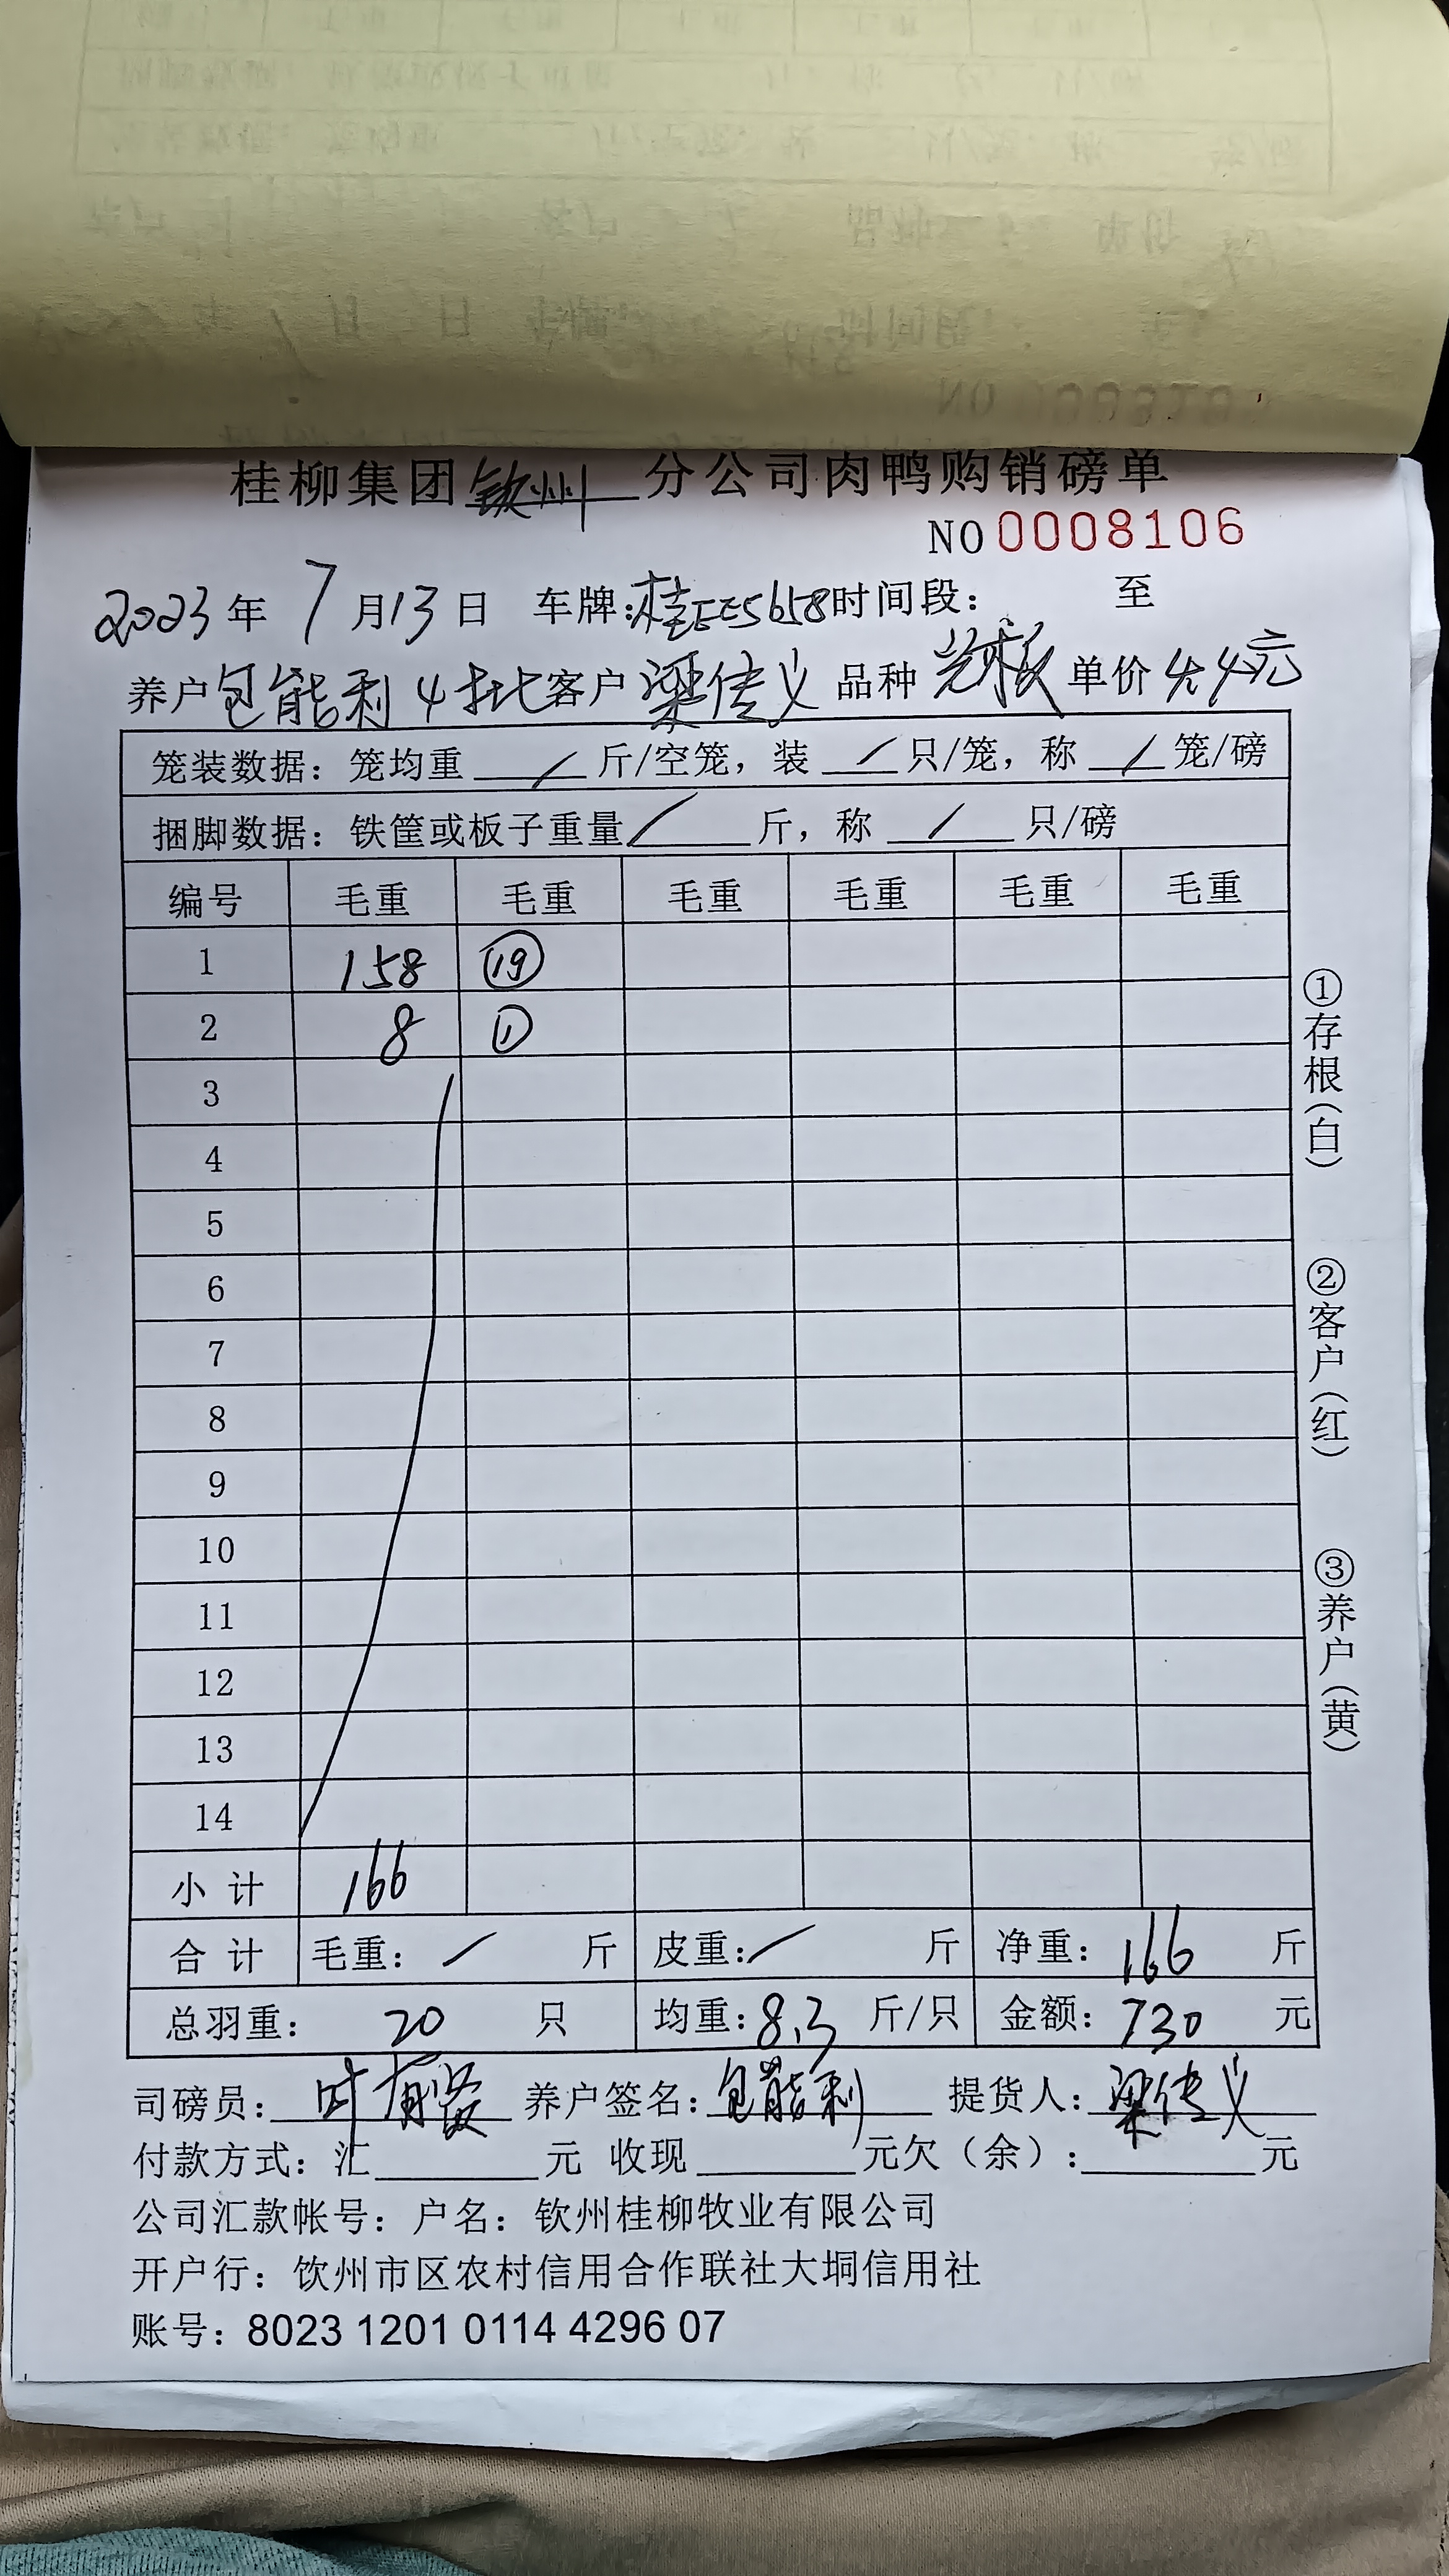 桂柳集团钦州分公司肉鸭购销磅单
NO 0008106
2023年7月13日 车牌:桂EE5658时间段: 至
养户包能利4批客户梁传义品种 单价4.4元
笼装数据：笼均重 / 斤/空笼，装 / 只/笼，称 / 笼/磅
捆脚数据：铁筐或板子重量 / 斤，称 / 只/磅
编号 毛重 毛重 毛重 毛重 毛重 毛重
1 158 ⑲
2 8 ①
3
4
5
6
7
8
9
10
11
12
13
14
小计 166
合计 毛重：/ 斤 皮重：/ 斤 净重：166 斤
总羽重：20 只 均重：8.3 斤/只 金额：730 元
司磅员： 养户签名：包能利 提货人：梁传义
付款方式：汇 元 收现 元欠（余）： 元
公司汇款帐号：户名：钦州桂柳牧业有限公司
开户行：饮州市区农村信用合作联社大垌信用社
账号：8023 1201 0114 4296 07
①存根（白）
②客户（红）
③养户（黄）